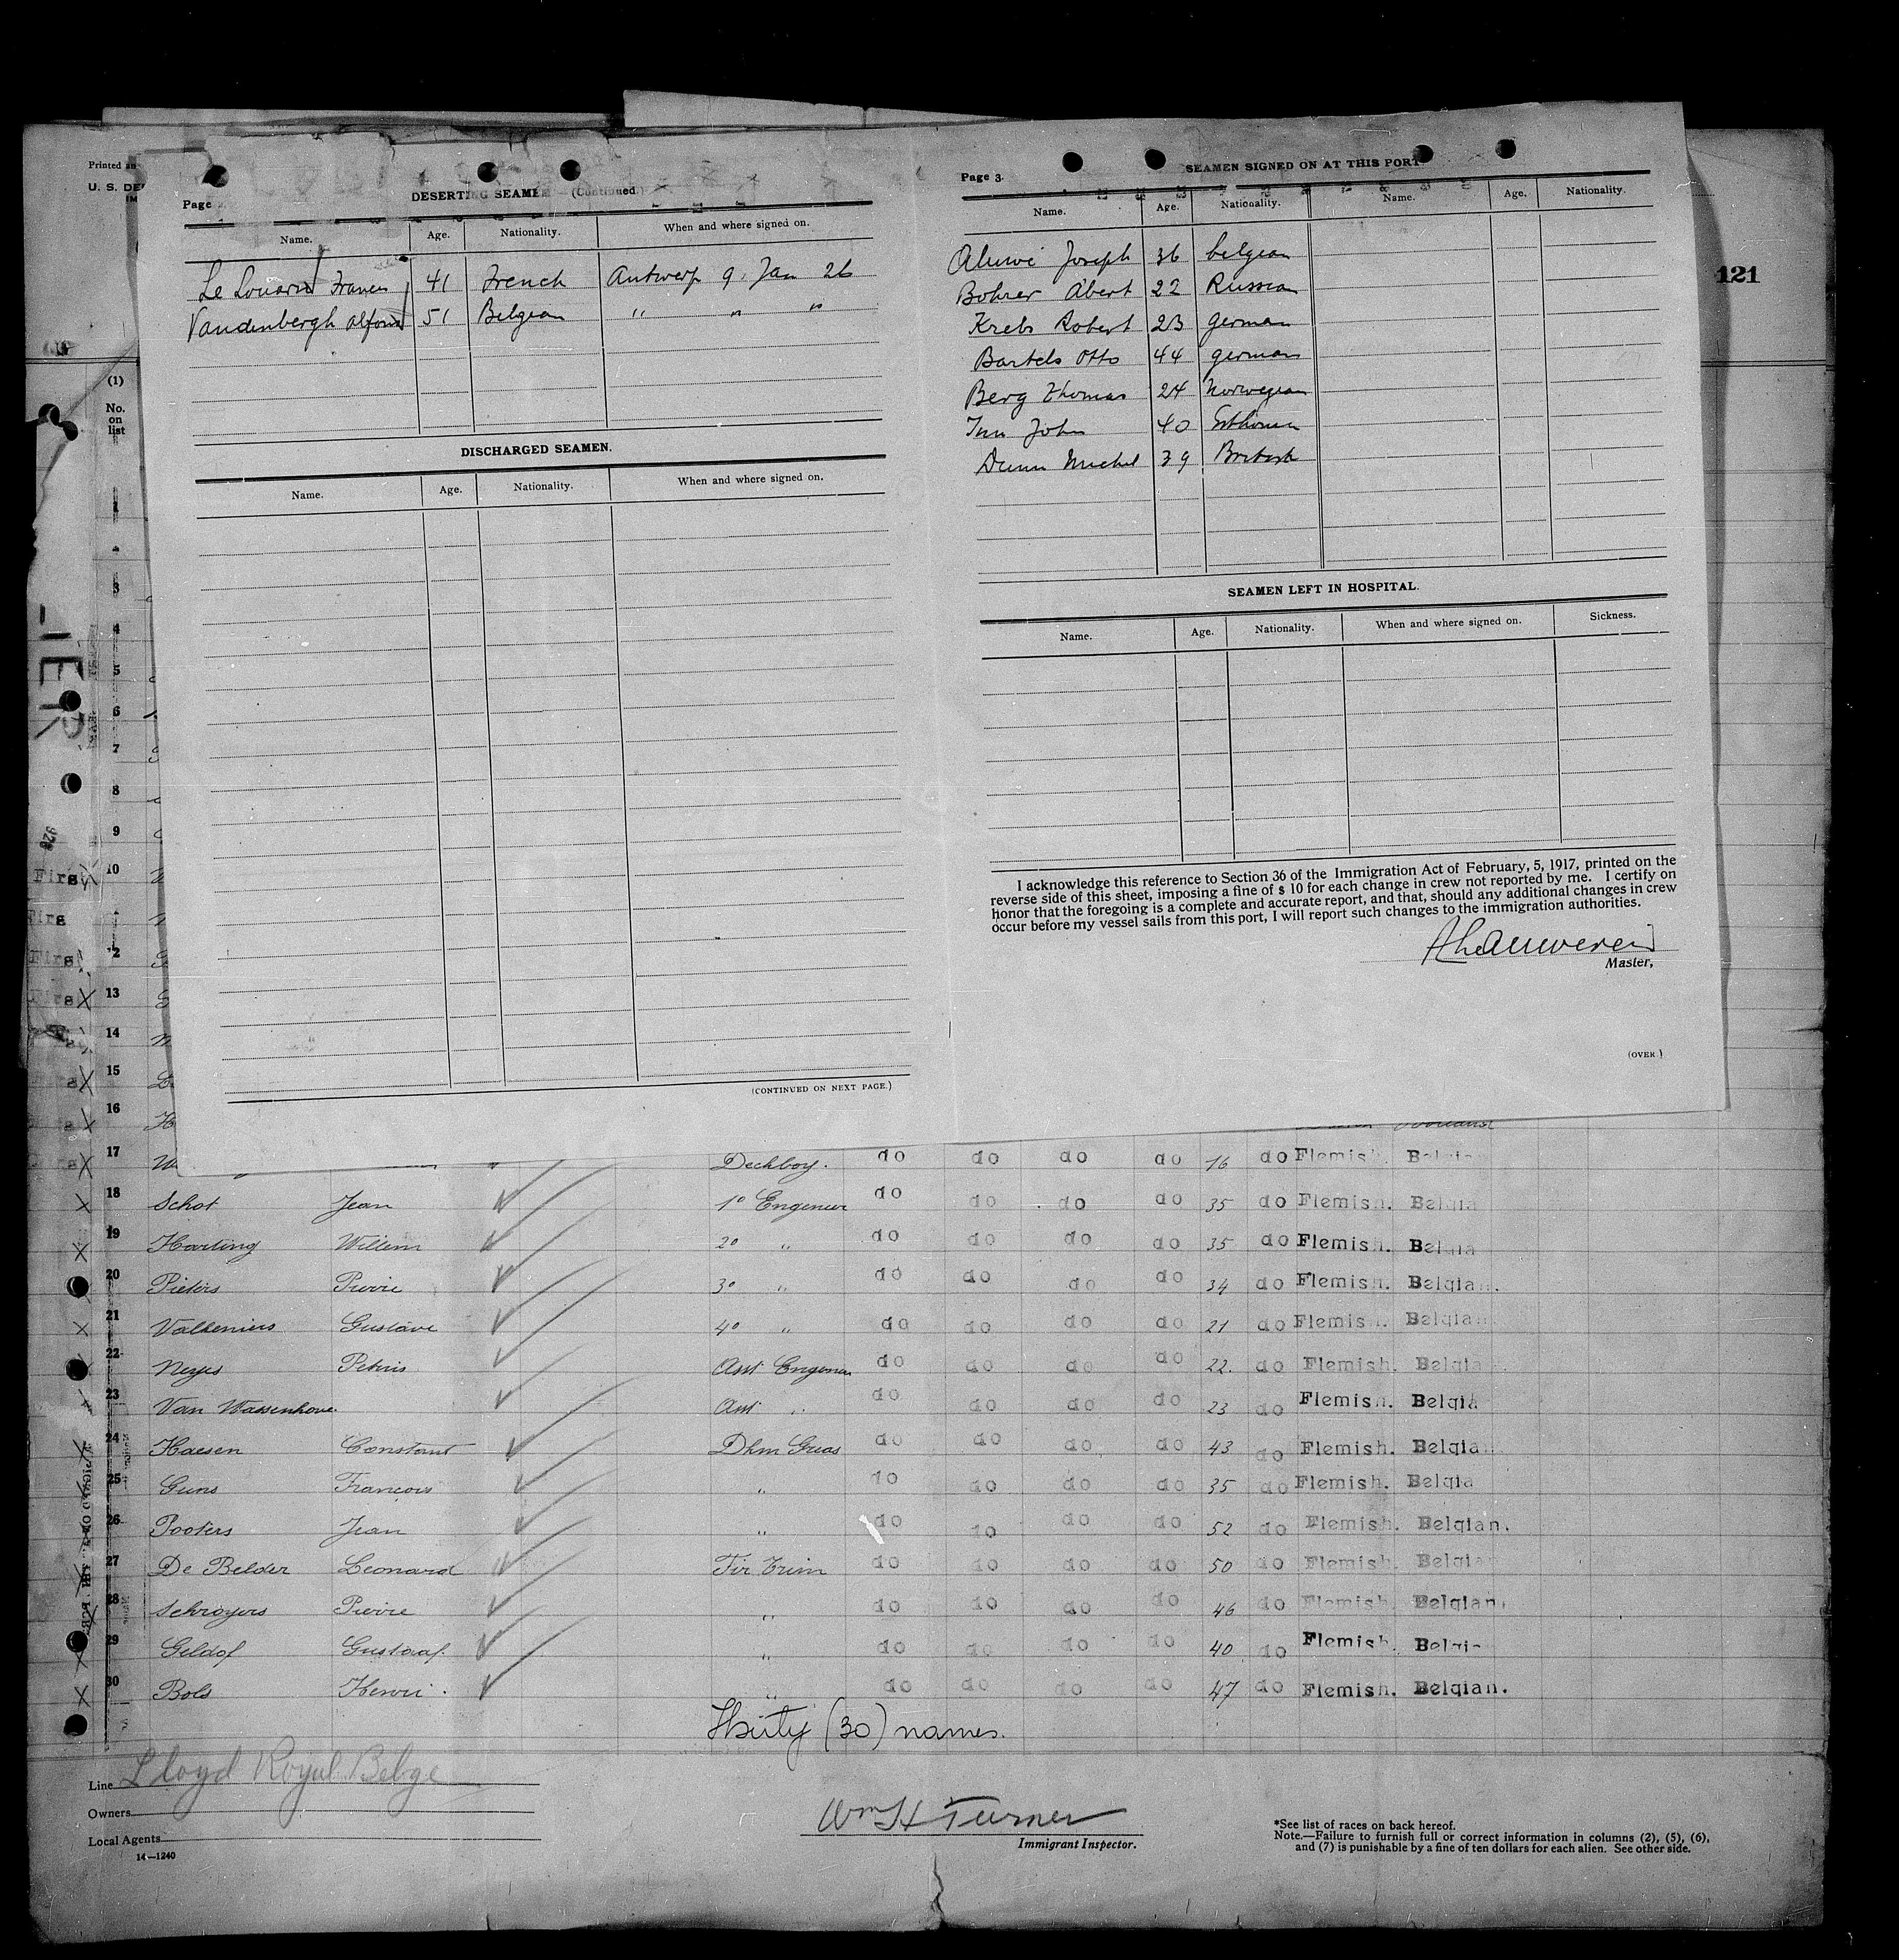 Printed
U. S. DE
Page
DESERTING SEAMEN (Continued.)
Name. Age. Nationality. When and where signed on.
Le Louarn 41 French Antwerp 9 Jan 26
Vandenbergh Alfons 51 Belgian " " "
DISCHARGED SEAMEN.
Name. Age. Nationality. When and where signed on.
(CONTINUED ON NEXT PAGE.)
Page 3.
SEAMEN SIGNED ON AT THIS PORT
Name. Age. Nationality. Name. Age. Nationality.
Joseph 36 belgian
Bohrer Abert 22 Russian
Krebs Robert 23 german
Bartels Otto 44 german
Berg Thomas 24 Norwegian
John 40
Dunn Michel 39 British
SEAMEN LEFT IN HOSPITAL.
Name. Age. Nationality. When and where signed on. Sickness.
I acknowledge this reference to Section 36 of the Immigration Act of February, 5, 1917, printed on the
reverse side of this sheet, imposing a fine of $ 10 for each change in crew not reported by me. I certify on
honor that the foregoing is a complete and accurate report, and that, should any additional changes in crew
occur before my vessel sails from this port, I will report such changes to the immigration authorities.
Master,
(OVER.)
121
(1)
No.
on
list
1
3
4
5
6
7
8
9
10
12
13
14
15
16
17 Deckboy. do do do do 16 do Flemish.
18 Schot Jean 1° Engeneer do do do do 35 do Flemish. Belgia
19 Harting Willem 2° " do do do do 35 do Flemish. Belgia
20 Pieters Pierre 3° " do do do do 34 do Flemish. Belgian.
21 Valkeniers Gustave 4° " do do do do 21 do Flemish. Belgian
22 Neyes Petrus Asst Engeneer do do do do 22. do Flemish. Belgia
23 Van Wassenhove. Asst " do do do do 23 do Flemish. Belgia
24 Haesen Constant do do do do 43 do Flemish. Belgian
25 Guns François " do do do do 35 do Flemish. Belgia
26 Pooters Jean " do do do do 52 do Flemish. Belgian.
27 De Belder Leonard Fir Trim do do do do 50 do Flemish. Belgian
28 Schroyers Pierre " do do do do 46 do Flemish. Belgian.
29 Geldof Gustaaf. " do do do do 40 do Flemish. Belgia
30 Bols Henri. " do do do do 47 do Flemish. Belgian.
Thirty (30) names.
Line Lloyd Royal Belge
Owners
Local Agents
14—1240
Wm H Turner
Immigrant Inspector.
*See list of races on back hereof.
Note.—Failure to furnish full or correct information in columns (2), (5), (6),
and (7) is punishable by a fine of ten dollars for each alien. See other side.